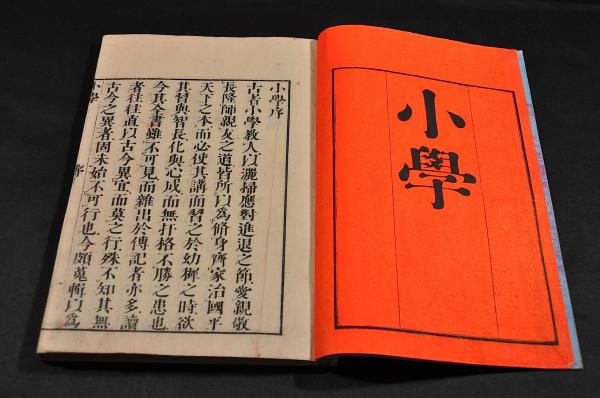 小學
小學序
古者小學教人以灑掃應對進退之節愛親敬
長隆師親友之道皆所以爲脩身齊家治國平
天下之本而必使其講而習之於幼穉之時欲
其習與智長化與心成而無扞格不勝之患也
今其全書雖不可見而雜出於傳記者亦多讀
者往往直以古今異宜而莫之行殊不知其無
古今之異者固未始不可行也今頗蒐輯以爲
小學
序